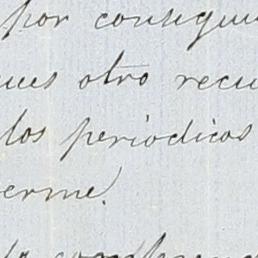 por consegui
ues otro recu
los periodicos
erme.